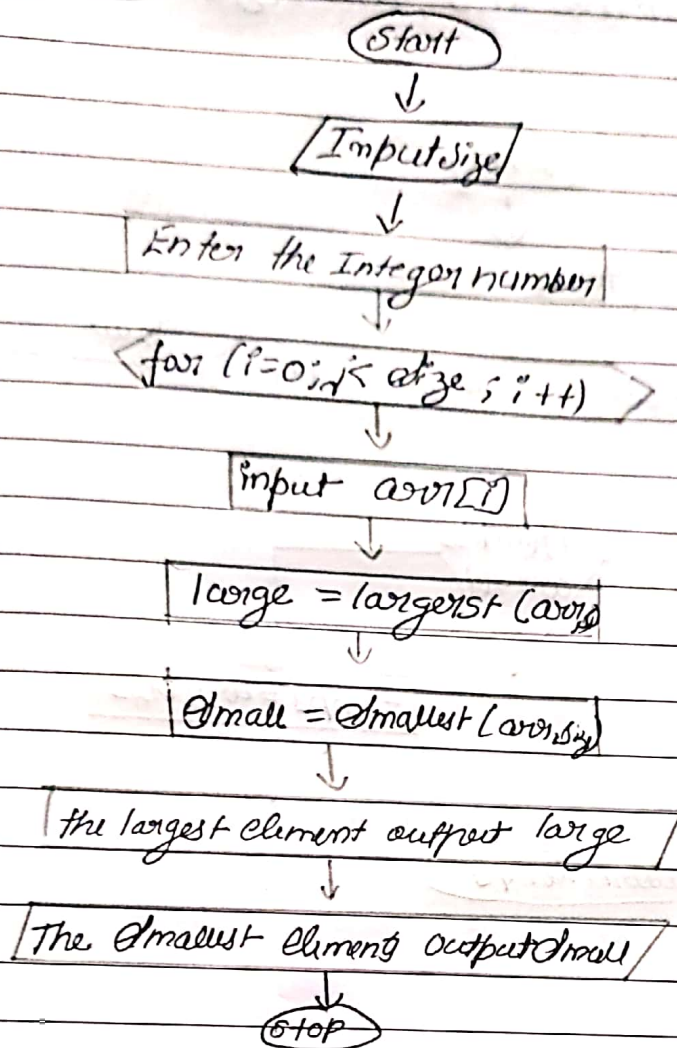 Start
Input size
Enter the Integer number
for (i=0; i< size ; i++)
input arr[i]
large = largerst (arr,
small = smallest (arr, size)
the largest element output large
The smallest element output small
Stop